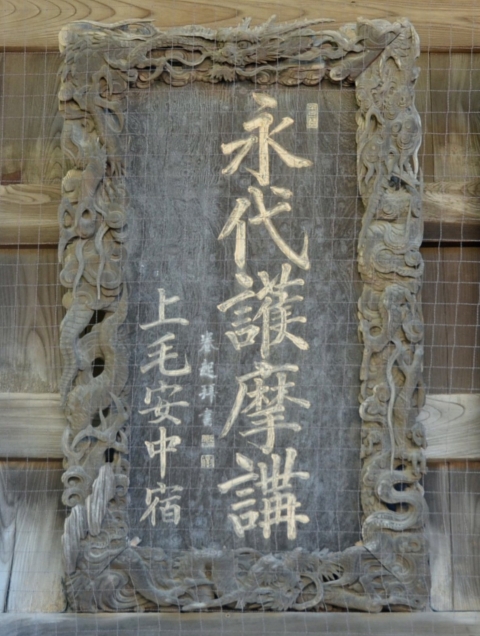 永代護摩講
拜書
上毛安中宿